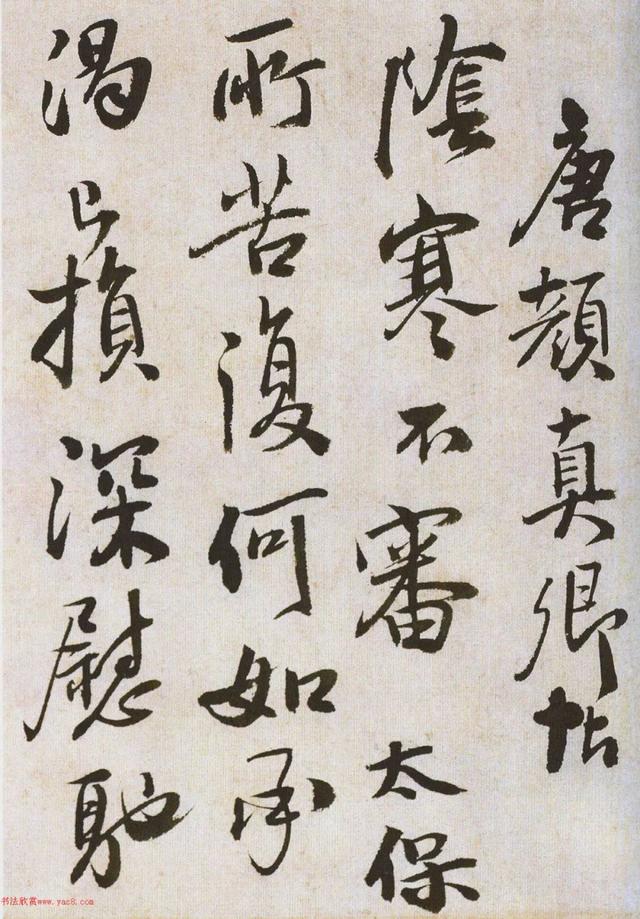 唐顔真卿帖
陰寒不審太保
所苦復何如承
渴已損深慰馳
书法欣赏www.yac8.com